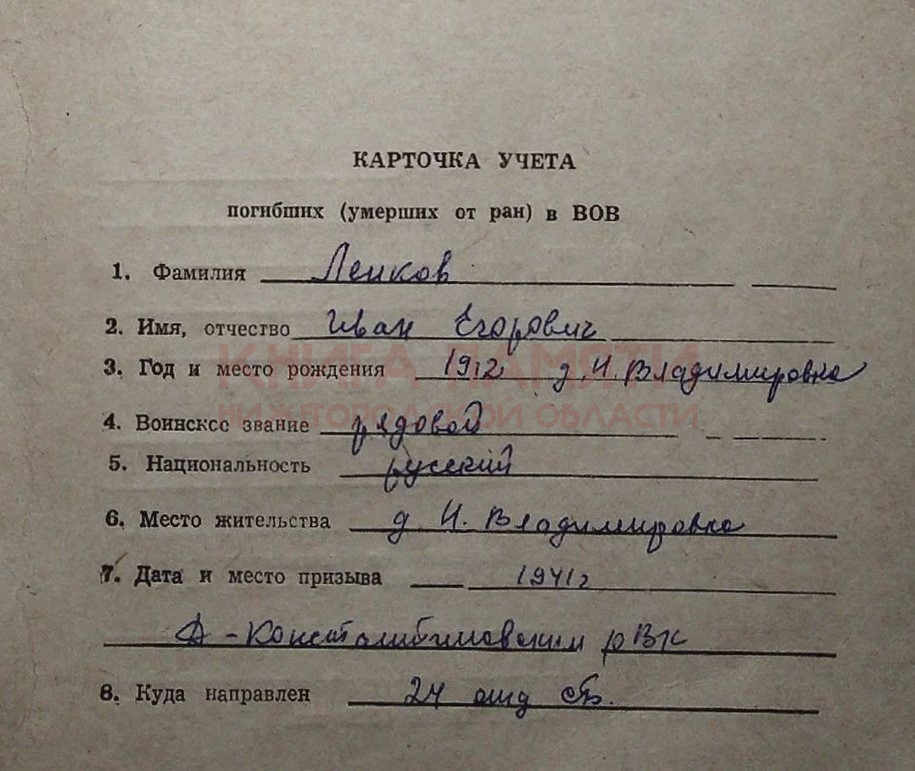 КАРТОЧКА УЧЕТА
погибших (умерших от ран) в ВОВ
1. Фамилия Ленков
2. Имя, отчество Иван Егорович
КНИГА ПАМЯТИ
3. Год и место рождения 1912 д. И. Владимировка
НИЖЕГОРОДСКОЙ ОБЛАСТИ
4. Воинское звание рядовой
5. Национальность русский
6. Место жительства д. И. Владимировка
7. Дата и место призыва 1941г
Д-Константиновским рВК
8. Куда направлен 24 отд сб.